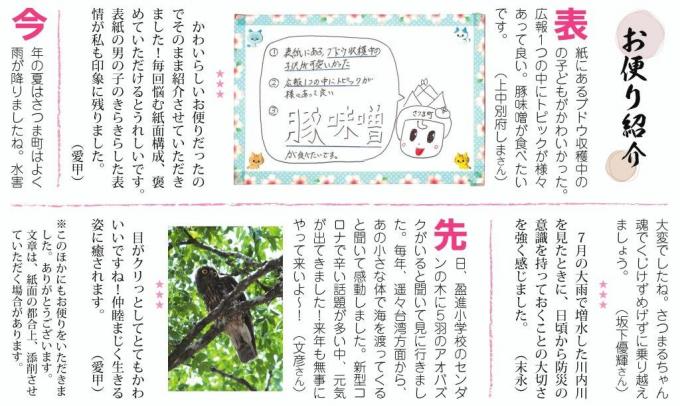 お便り紹介
表紙にあるブドウ収穫中の
の子どもがかわいかった。
広報1つの中にトピックが様々
あって良い。豚味噌が食べたい
です。
(上中別府しまさん)
①表紙にあるブドウ収穫中の
子供が可愛いかった
②広報1つの中にトピックが
様々あって良い
③
豚味噌
が食べたいです。
さつま町
★★★
かわいらしいお便りだったの
でそのまま紹介させていただき
ました!毎回悩む紙面構成、褒
めていただけるとうれしいです。
表紙の男の子のきらきらした表
情が私も印象に残りました。
(愛甲)
今年の夏はさつま町はよく
雨が降りましたね。水害
大変でしたね。さつまるちゃん
魂でくじけずめげずに乗り越え
ましょう。
(坂下優輝さん)
★★★
7月の大雨で増水した川内川
を見たときに、日頃から防災の
意識を持っておくことの大切さ
を強く感じました。
(末永)
先日、盈進小学校のセンダ
ンの木に5羽のアオバズ
クがいると聞いて見に行きまし
た。毎年、遥々台湾方面から、
あの小さな体で海を渡ってくる
と聞いて感動しました。新型コ
ロナで辛い話題が多い中、元気
が出てきました!来年も無事に
やって来いよ~!
(文彦さん)
★★★
目がクリっとしてとてもかわ
いいですね!仲睦まじく生きる
姿に癒されます。
(愛甲)
※このほかにもお便りをいただきま
した。ありがとうございます。
文章は、紙面の都合上、添削させ
ていただく場合があります。